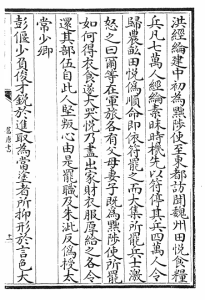 洪經綸建中初為黜陟使至東都訪聞魏州田悅食糧
兵凡七萬人經綸素昧時機先以符停其兵四萬人令
歸農畝田悅偽順命即依符罷之而大集所罷兵士激
怒之曰爾等在軍旅各有父母妻子既為黜陟使所罷
如何得衣食遂大哭悅乃盡出家財衣服厚給之各令
還其部伍自此人堅叛心由是罷職及朱泚反偽授太
常少卿
彭偃少負俊才銳於進取為當塗者所抑形於言色大